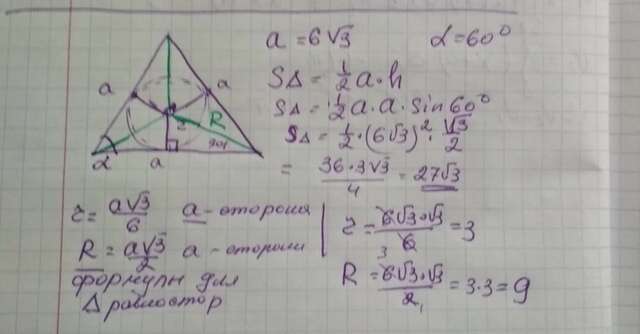 a = 6√3   α = 60°
S∆ = 1/2 a · h
S∆ = 1/2 a · a · sin 60°
S∆ = 1/2 · (6√3)² · √3/2
= 36 · 3√3 / 4 = 27√3
a   a
R
r
α   a
r = a√3/6   a - сторона
R = a√3/2   a - сторони
формулы для
∆ равностор
r = 6√3 · √3 / 6 = 3
R = 6√3 · √3 / 2 = 3 · 3 = 9